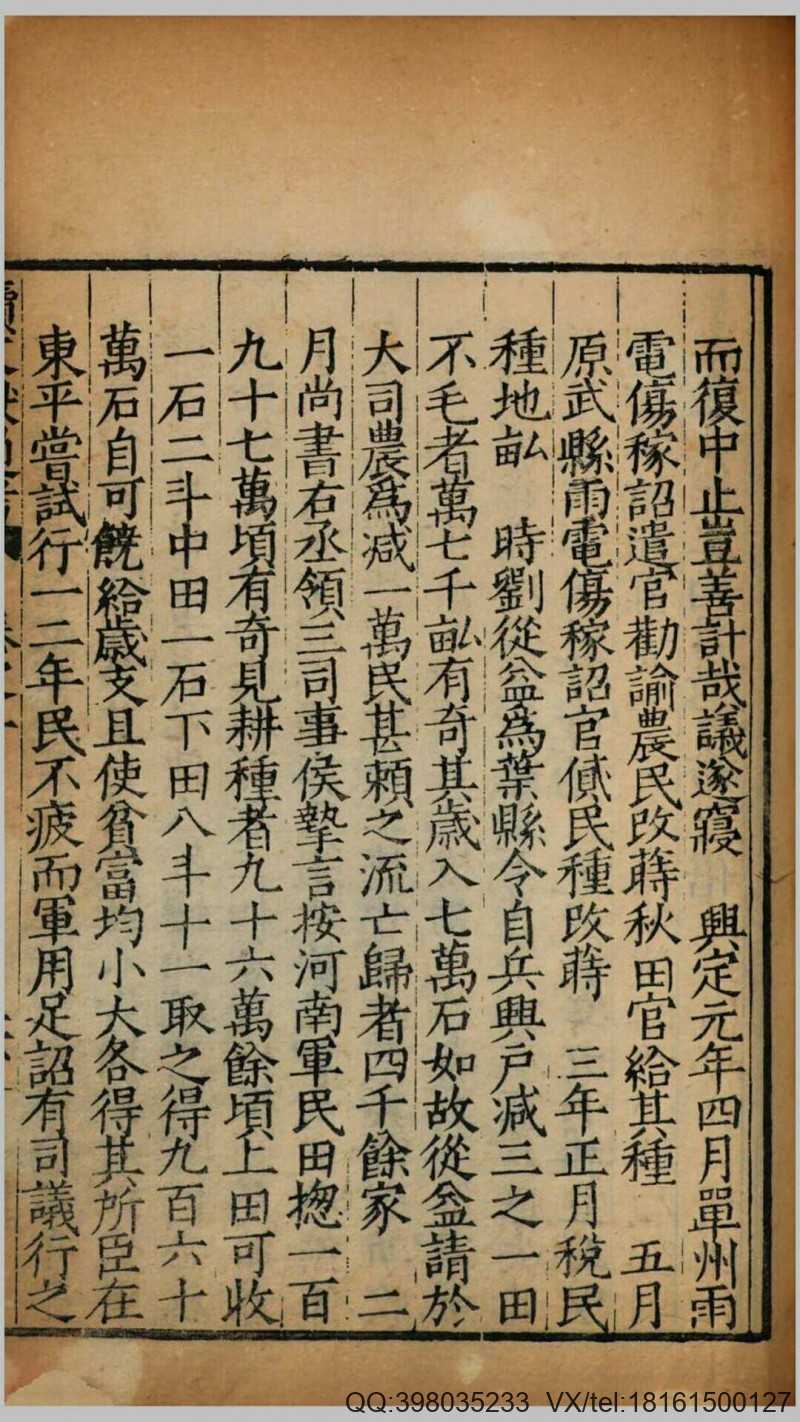 而復中止豈善計哉議遂寢　興定元年四月單州雨
雹傷稼詔遣官勸諭農民改蒔秋田官給其種　五月
原武縣雨雹傷稼詔官貸民種改蒔　三年正月稅民
種地畝　時劉從益爲葉縣令自兵興戶减三之一田
不毛者萬七千畝有奇其歲入七萬石如故從益請於
大司農爲减一萬民甚賴之流亡歸者四千餘家　二
月尚書右丞領三司事侯摯言按河南軍民田揔一百
九十七萬頃有奇見耕種者九十六萬餘頃上田可收
一石二斗中田一石下田八斗十一取之得九百六十
萬石自可饒給歲支且使貧富均小大各得其所臣在
東平嘗試行一二年民不疲而軍用足詔有司議行之
QQ:398035233 VX/tel:18161500127